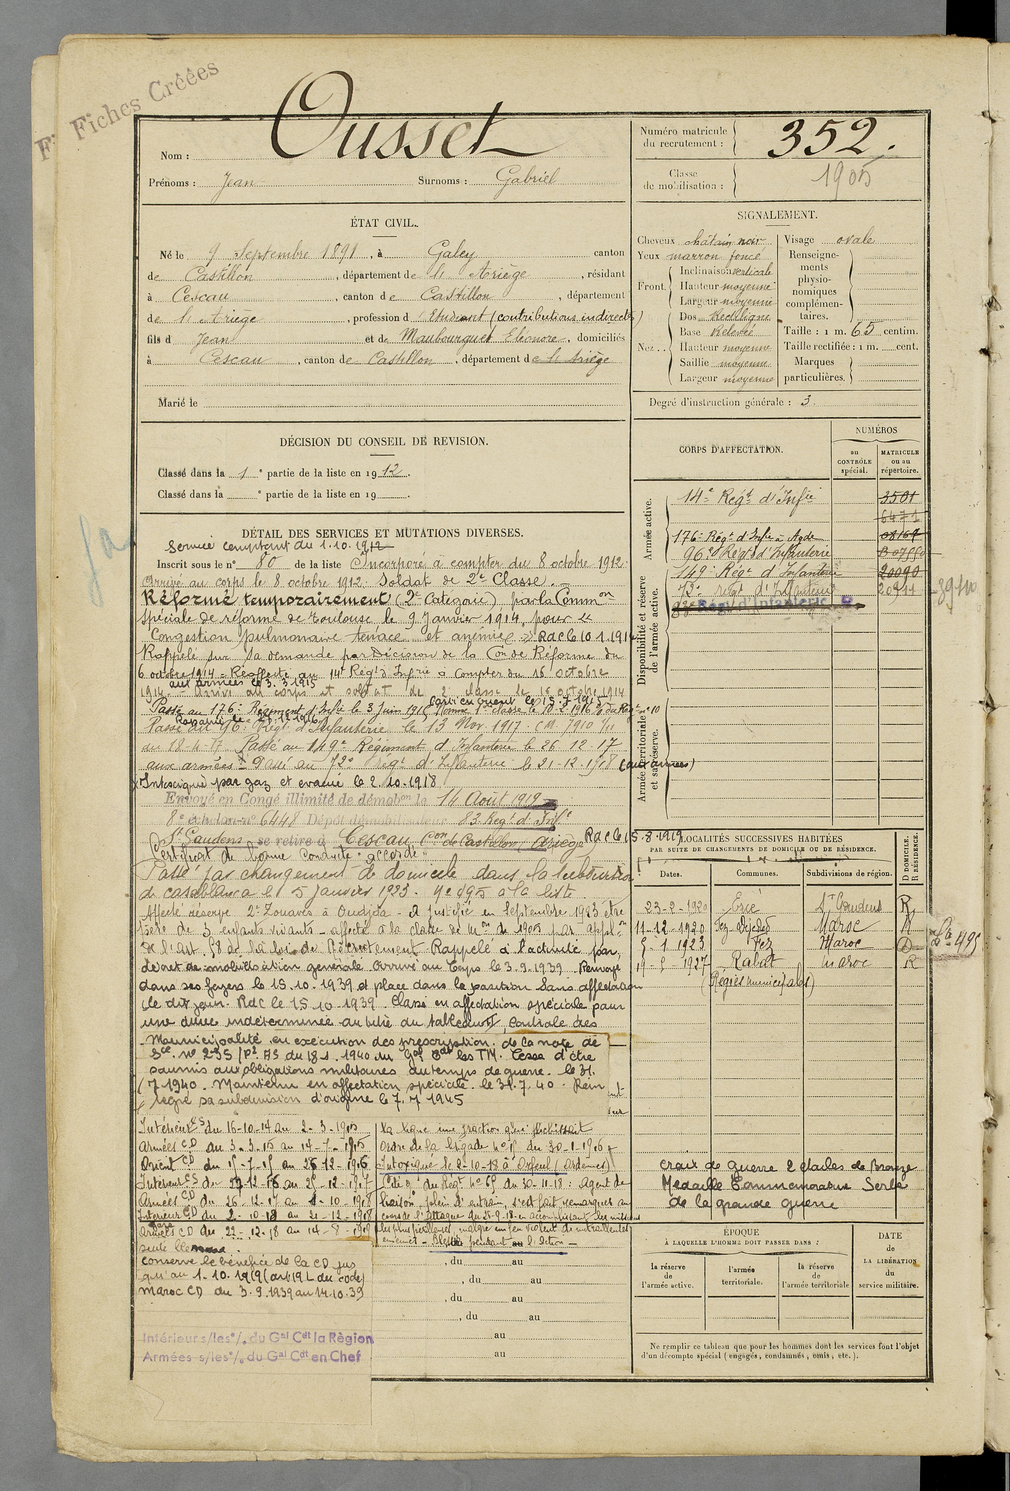 Fiches Créées
Nom : Ousset
Prénoms : Jean Surnoms : Gabriel
Numéro matricule du recrutement : 352.
Classe de mobilisation : 1905
ÉTAT CIVIL.
Né le 9 Septembre 1891, à Galey canton
de Castillon, département de l'Ariège, résidant
à Cescau, canton de Castillon, département
de l'Ariège, profession d'Etudiant (contributions indirectes)
fils d Jean et de Maubourguet Eléonore, domiciliés
à Cescau, canton de Castillon, département de l'Ariège
Marié le
SIGNALEMENT.
Cheveux châtain noir
Yeux marron foncé
Front. Inclinaison verticale
Hauteur moyenne
Largeur moyenne
Nez. Dos rectiligne
Base relevée
Hauteur moyenne
Saillie moyenne
Largeur moyenne
Visage ovale
Renseignements physionomiques complémentaires.
Taille : 1 m. 65 centim.
Taille rectifiée : 1 m. cent.
Marques particulières.
Degré d'instruction générale : 3.
DÉCISION DU CONSEIL DE REVISION.
Classé dans la 1e partie de la liste en 1912.
Classé dans la e partie de la liste en 19
CORPS D'AFFECTATION.
NUMÉROS
au CONTRÔLE spécial.
MATRICULE ou au répertoire.
Armée active.
14e Régt d'Infie 3501
176e Régt d'Infie à Agde 08168
96e Régt d'Infanterie
149e Régt d'Infanterie 20090
72e régt d'Infanterie 20911
Régt d'Infanterie
Disponibilité et réserve de l'armée active.
Armée territoriale et sa réserve.
DÉTAIL DES SERVICES ET MUTATIONS DIVERSES.
Service comptant du 1.10.1912
Inscrit sous le n° 80 de la liste Incorporé à compter du 8 octobre 1912.
Arrivé au corps le 8 octobre 1912. Soldat de 2e Classe.
Réformé temporairement (2e Catégorie) par la Common
spéciale de réforme de Toulouse le 9 Janvier 1914, pour
Congestion pulmonaire tenace et anémie RdC le 10.1.1914
Rappelé sur sa demande par Décision de la Con de Réforme du
6 octobre 1914. Réaffecté au 14e Régt d'Infie à compter du 16 octobre
aux armées le 3.3.1915
1914. Arrivé au corps et soldat de 2e classe le 16 octobre 1914
Passé au 176e Régiment d'Infie le 3 Juin 1915 Nommé 1e classe le 10-2-1916 du Régt n° 10
Passé au 96e Régt d'Infanterie le 13 Nov. 1917.
du 18-4-17 Passé au 149e Régiment d'Infanterie le 26.12.17
aux armées Passé au 72e régt d'Infanterie le 21-12-1918 (aux armées)
Intoxiqué par gaz et évacué le 2.10.1918
Envoyé en Congé illimité de démobon le 14 Août 1919
8e échelon n° 6448 Dépôt démobilisateur 83 Régt d'Infie
St Gaudens se retire à Cescau, Con de Castillon, Ariège RdC le 15.8.1919
Certificat de bonne conduite accordé
Passé par changement de domicile dans la subdivision
de Casablanca le 5 Janvier 1923.
Affecté réserve 2e Zouaves à Oudjda - a justifié en septembre 1923 être
père de 3 enfants vivants - affecté à la classe de Mon de 1905 par applon
de l'art. 58 de la loi de Recrutement Rappelé à l'activité par
décret de mobilisation générale arrivé au Corps le 3.9.1939 Renvoyé
dans ses foyers le 15.10.1939 et placé dans la position sans affectation
le dit jour. RdC le 15.10.1939. Classé en affectation spéciale pour
une durée indéterminée au titre du tableau II, contrôle des
Municipalité en exécution des prescription. de la note de
Sce n° 235 /P2 73 du 18.1.1940 du Gal Cdt les TM. Cesse d'être
soumis aux obligations militaires du temps de guerre le 31.
7.1940. Maintenu en affectation spéciale le 31.7.40. Réin
tégré sa subdivision d'origine le 7.7.1945
Intérieur CS du 16-10-14 au 2-3-1915
Armées CD du 3-3-15 au 14-7-1915
Orient CD du 15-7-15 au 26-12-1916
Intérieur CS du 27-12-16 au 25-12-1917
Armées CD du 26-12-17 au 1-10-1918
Intérieur CD du 2-10-18 au 21-12-1918
Armées CD du 22-12-18 au 14-8-1919
conserve le bénéfice de la CD jus
qu'au 1-10-1919 (art 19 L du code)
Maroc CD du 3.9.1939 au 14.10.39
Intérieur s/les °/. du Gal Cdt la Région
Armées s/les °/. du Gal Cdt en Chef
sa ligne une fraction qui fléchissait
ordre de la brigade n° 18 du 30-1-1916
Intoxiqué le 2-10-18 à Orfeuil (Ardennes)
Cité o/ du Régt n° 65 du 30-11-18 : Agent de
liaison plein d'entrain, s'est fait remarquer au
cours de l'attaque du 25-9-18 en accomplissant les missions
les plus périlleuses malgré un feu violent de mitrailleuses
ennemies -
, du au
, du au
, du au
, du au
au
au
LOCALITÉS SUCCESSIVES HABITÉES
PAR SUITE DE CHANGEMENTS DE DOMICILE OU DE RÉSIDENCE.
Dates. Communes. Subdivisions de région. D DOMICILE. R RÉSIDENCE.
23-2-1920 Ercé St Gaudens R
11-12-1920 Fez Djedid Maroc R
5-1-1923 Fez Maroc D
19-5-1927 Rabat Maroc R
(Régies municipales)
croix de guerre 2 étoiles de bronze
Médaille Commémorative Serbe
de la grande guerre
ÉPOQUE
À LAQUELLE L'HOMME DOIT PASSER DANS :
la réserve de l'armée active.
l'armée territoriale.
la réserve de l'armée territoriale
DATE de LA LIBÉRATION du service militaire.
Ne remplir ce tableau que pour les hommes dont les services font l'objet
d'un décompte spécial (engagés, condamnés, omis, etc.).